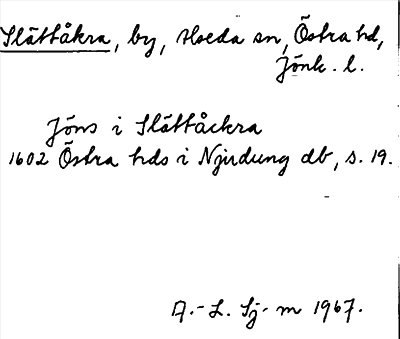 Slättåkra, by, Hoeda sn, Östra hd,
Jönk. l.
Jöns i Slättåckra
1602 Östra hds i Njudung db, s. 19.
A.-L. Sj-m 1967.